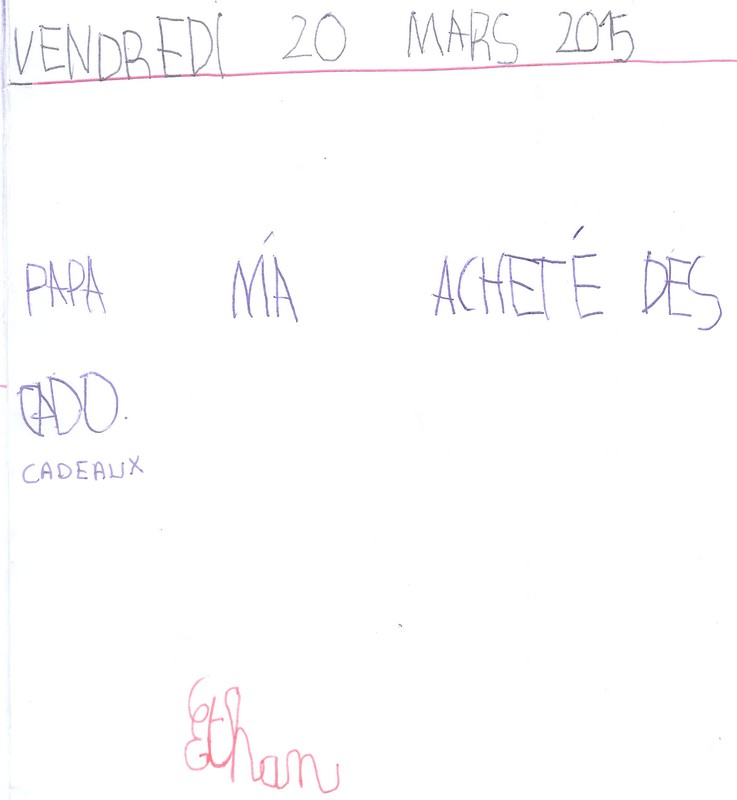 VENDREDI 20 MARS 2015
PAPA M'A ACHETÉ DES
CADO.
CADEAUX
Ethan